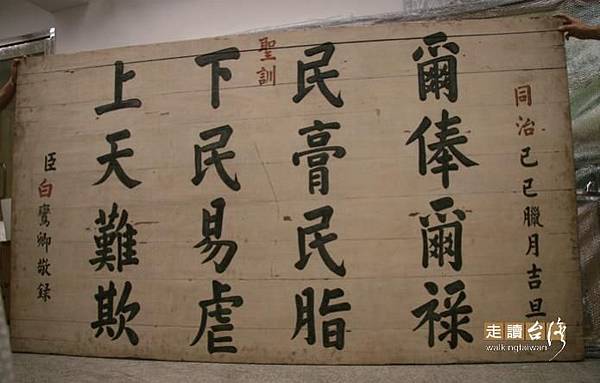 聖訓
同治己巳臘月吉旦
爾俸爾祿
民膏民脂
下民易虐
上天難欺
臣白鸞卿敬録
走讀台灣
walkingtaiwan